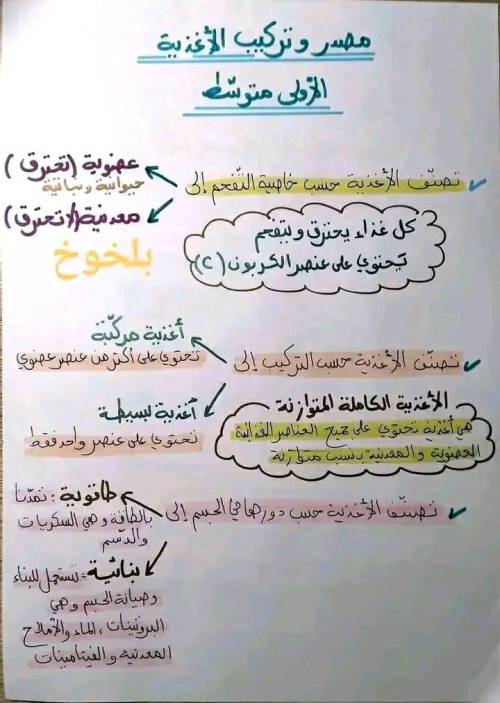 مصدر وتركيب الأغذية
الأولى متوسّط
تصنّف الأغذية حسب خاصية التفحم إلى
عضوية (تحترق)
حيوانية ونباتية
معدنية (لا تحترق)
كل غذاء يحترق و يتفحم
يحتوي على عنصر الكربون (C)
بلخوخ
تصنّف الأغذية حسب التركيب إلى
أغذية مركبّة
تحتوي على أكثر من عنصر عضوي
أغذية بسيطة
تحتوي على عنصر واحد فقط
الأغذية الكاملة المتوازنة
هي أغذية تحتوي على جميع العناصر الغذائية
العضوية والمعدنية بنسب متوازنة
تصنّف الأغذية حسب دورها في الجسم إلى
طاقوية: تمدّنا
بالطاقة وهي السكريات
والدّسم
بنائية: تستعمل للبناء
وصيانة الجسم وهي
البروتينات، الماء والأملاح
المعدنية والفيتامينات